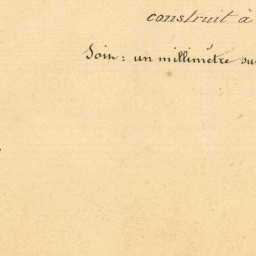 construit à
Soit : un millimètre